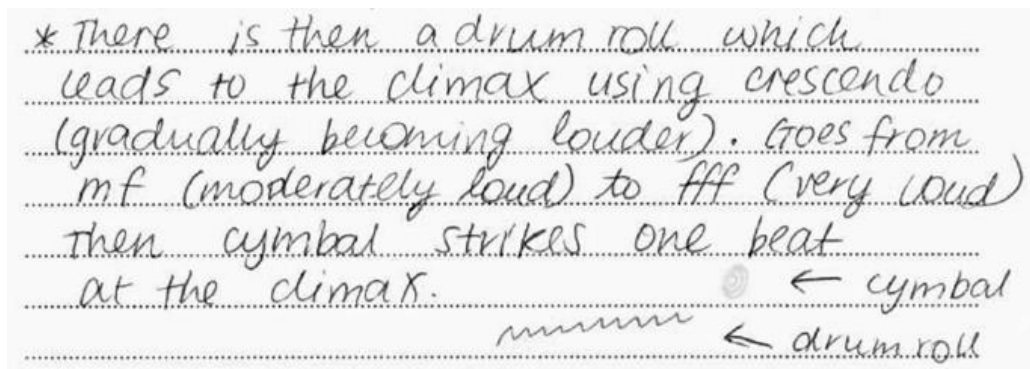 * There is then a drum roll which
leads to the climax using crescendo
(gradually becoming louder). Goes from
mf (moderately loud) to fff (very loud)
Then cymbal strikes one beat
at the climax.
← cymbal
← drum roll